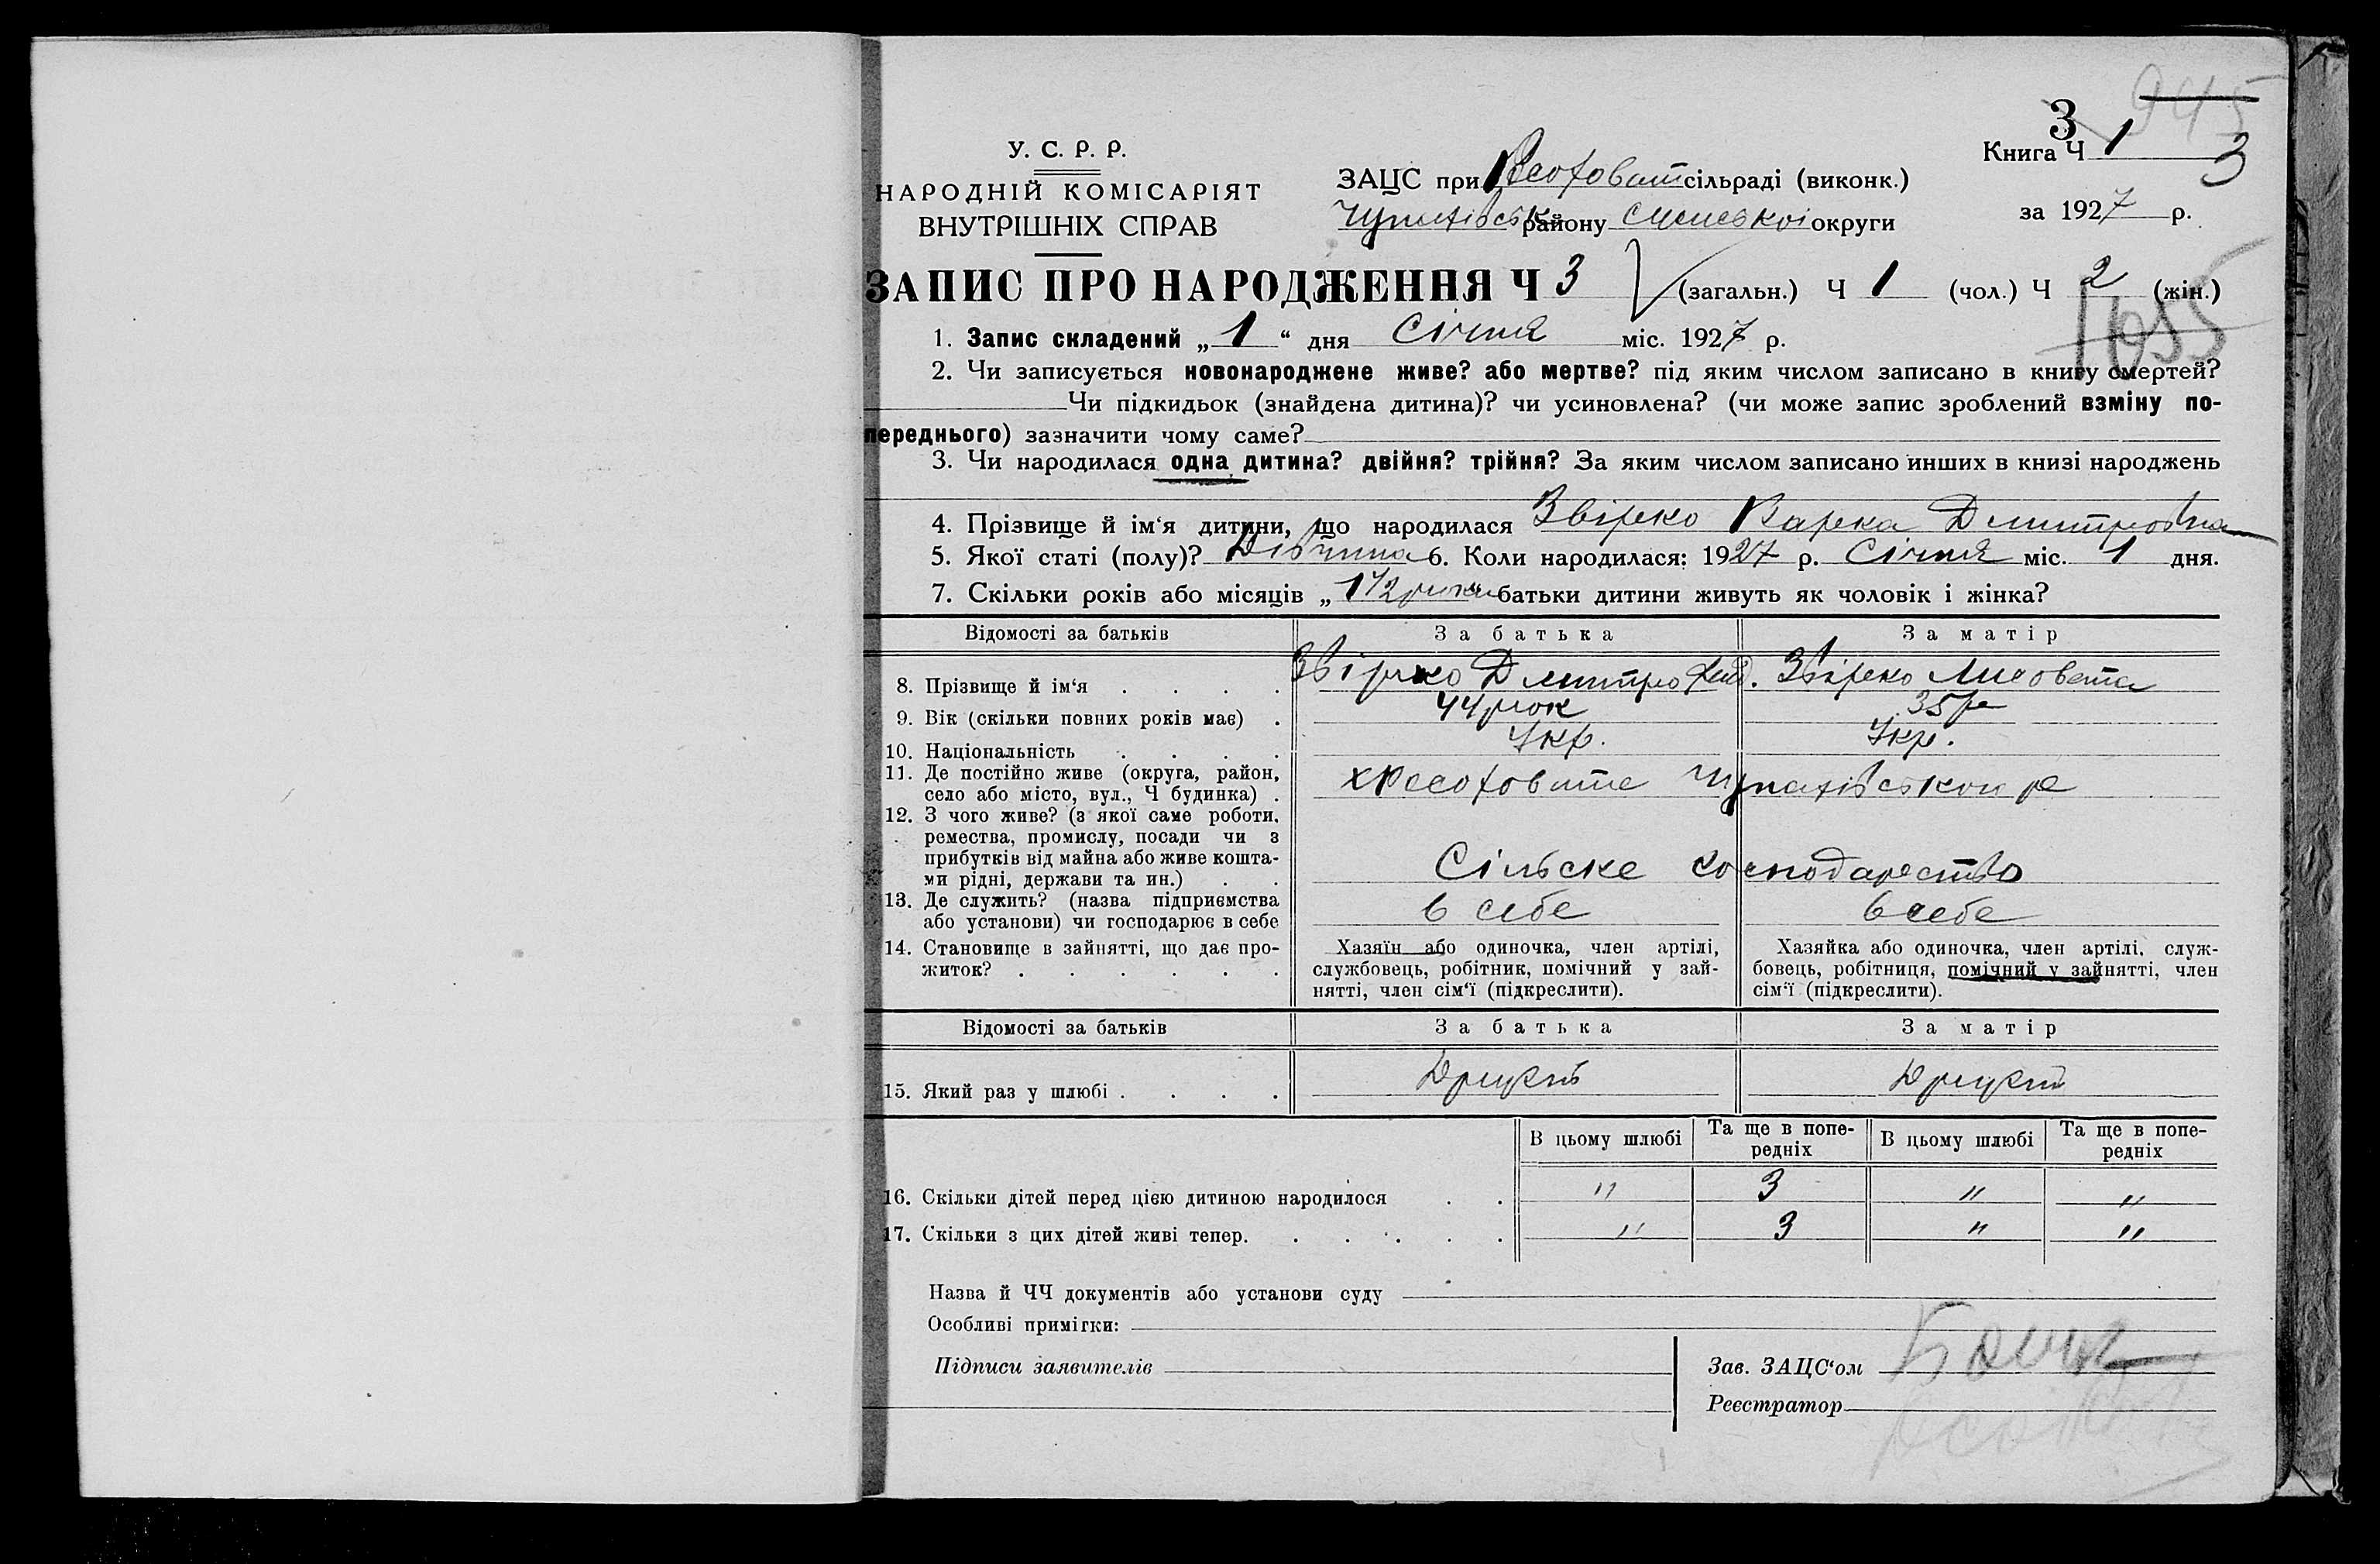 945
3
У. С. Р. Р.
Книга Ч 1
3
НАРОДНІЙ КОМІСАРІЯТ
ВНУТРІШНІХ СПРАВ
ЗАЦС при сільраді (виконк.)
Чупахівськ району Сумської округи
за 1927 р.
ЗАПИС ПРО НАРОДЖЕННЯ Ч 3 (загальн.) Ч 1 (чол.) Ч 2 (жін.)
1655
1. Запис складений „ 1 “ дня Січня міс. 1927 р.
2. Чи записується новонароджене живе? або мертве? під яким числом записано в книгу смертей?
Чи підкидьок (знайдена дитина)? чи усиновлена? (чи може запис зроблений взміну по-
переднього) зазначити чому саме?
3. Чи народилася одна дитина? двійня? трійня? За яким числом записано инших в книзі народжень
4. Прізвище й ім‘я дитини, що народилася Звірко Варка Дмитровна
5. Якої статі (полу)? Дівчина 6. Коли народилася: 1927 р. Січня міс. 1 дня.
7. Скільки років або місяців „ 1 1/2 роки “ батьки дитини живуть як чоловік і жінка?
Відомості за батьків За батька За матір
8. Прізвище й ім‘я Звірко Дмитро Звірко Лисовета
9. Вік (скільки повних років має) 44 рок 35 р
10. Національність Укр. Укр.
11. Де постійно живе (округа, район,
село або місто, вул., Ч будинка) Чупахівської р
12. З чого живе? (з якої саме роботи,
ремества, промислу, посади чи з
прибутків від майна або живе кошта-
ми рідні, держави та ин.) Сільске господарство
13. Де служить? (назва підприємства
або установи) чи господарює в себе в себе в себе
14. Становище в зайнятті, що дає про-
житок?
Хазяїн або одиночка, член артілі,
службовець, робітник, помічний у зай-
нятті, член сім‘ї (підкреслити).
Хазяйка або одиночка, член артілі, служ-
бовець, робітниця, помічний у зайнятті, член
сім‘ї (підкреслити).
Відомості за батьків За батька За матір
15. Який раз у шлюбі Другий Другий
В цьому шлюбі Та ще в попе-
редніх В цьому шлюбі Та ще в попе-
редніх
16. Скільки дітей перед цією дитиною народилося " 3 " "
17. Скільки з цих дітей живі тепер. " 3 " "
Назва й ЧЧ документів або установи суду
Особливі примітки:
Підписи заявителів
Зав. ЗАЦС‘ом
Реєстратор